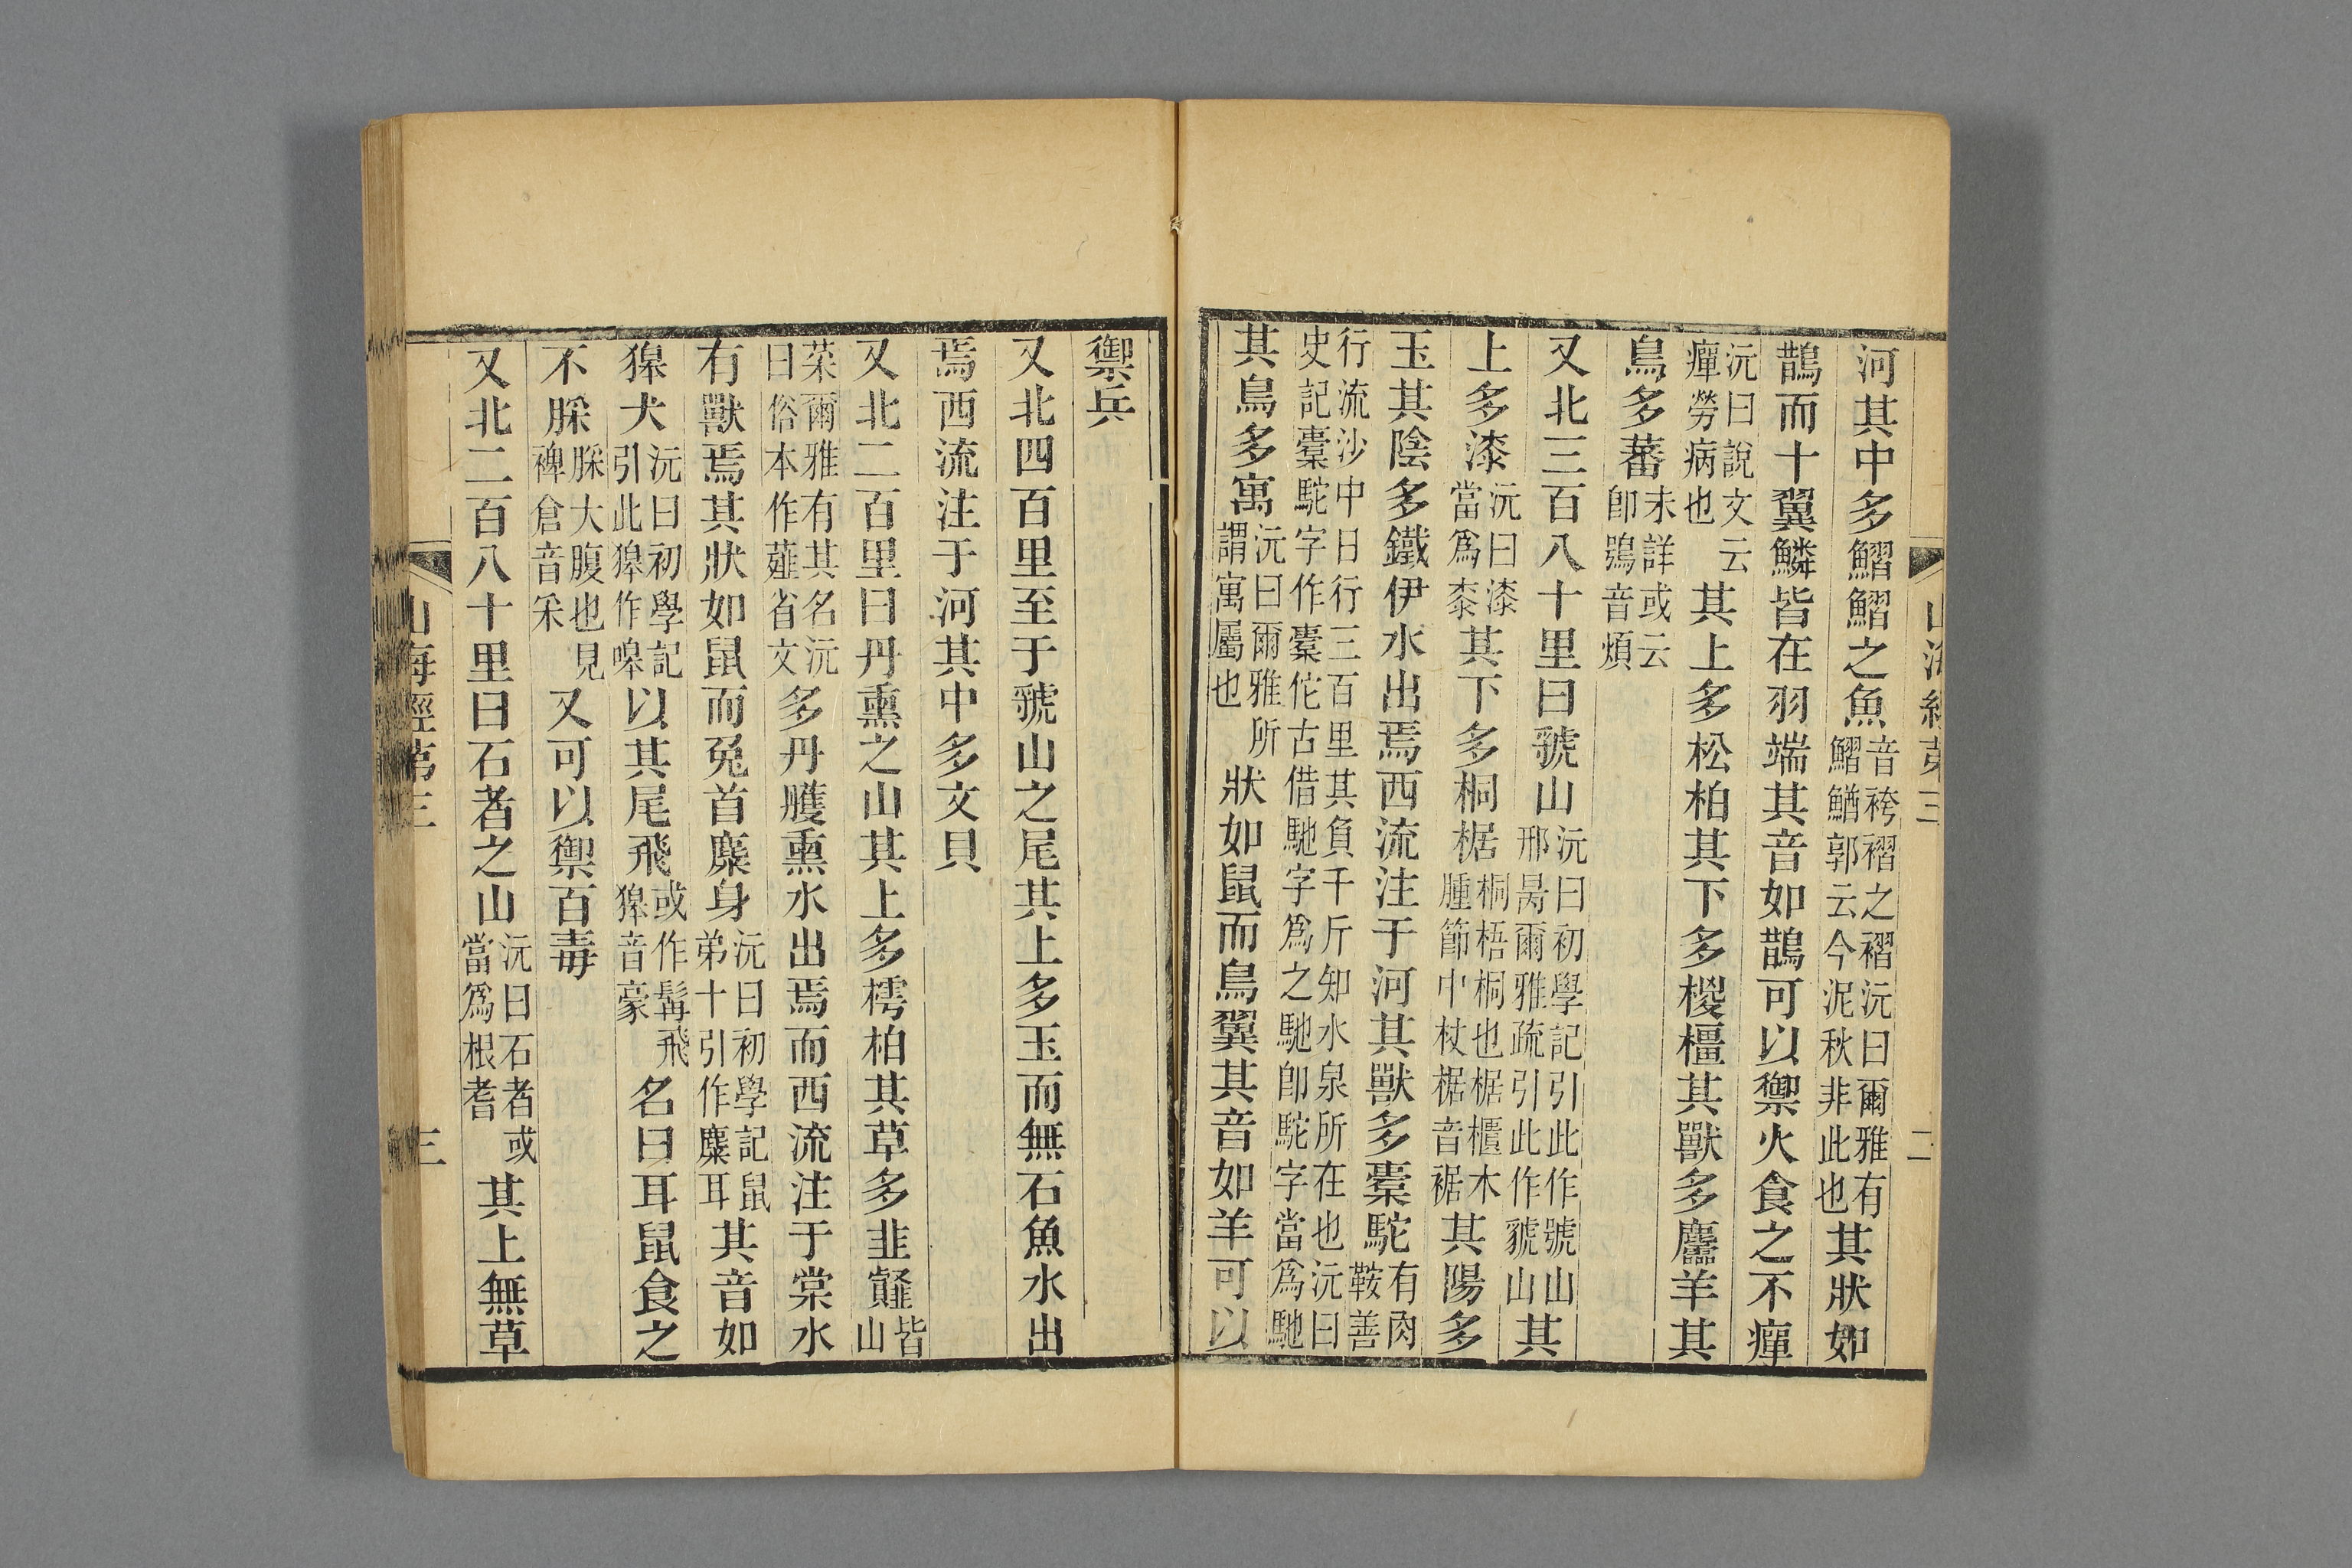 山海經第三
二
河其中多鰼鰼之魚音袴褶之褶沅曰爾雅有鰼鰌郭云今泥秋非此也其狀如
鵲而十翼鱗皆在羽端其音如鵲可以禦火食之不癉
沅曰說文云癉勞病也其上多松柏其下多椶橿其獸多麢羊其
鳥多蕃未詳或云卽鴞音煩
又北三百八十里曰虢山沅曰初學記引此作號山邢昺爾雅疏引此作貌山其
上多漆沅曰漆當爲桼其下多桐椐桐梧桐也椐樻木腫節中杖椐音裾其陽多
玉其陰多鐵伊水出焉西流注于河其獸多橐駝有肉鞍善
行流沙中日行三百里其負千斤知水泉所在也沅曰史記橐駝字作橐佗古借馳字爲之馳卽駝字當爲馳
其鳥多寓沅曰爾雅所謂寓屬也狀如鼠而鳥翼其音如羊可以
禦兵
又北四百里至于虢山之尾其上多玉而無石魚水出
焉西流注于河其中多文貝
又北二百里曰丹熏之山其上多樗柏其草多韭䪥皆山
菜爾雅有其名沅曰俗本作薤省文多丹雘熏水出焉而西流注于棠水
有獸焉其狀如鼠而兔首麋身沅曰初學記鼠弟十引作麋耳其音如
獋犬沅曰初學記引此獋作嗥以其尾飛或作髯飛獋音豪名曰耳鼠食之
不䐆䐆大腹也見裨倉音采又可以禦百毒
又北二百八十里曰石者之山沅曰石者或當爲根耆其上無草
山海經第三
三